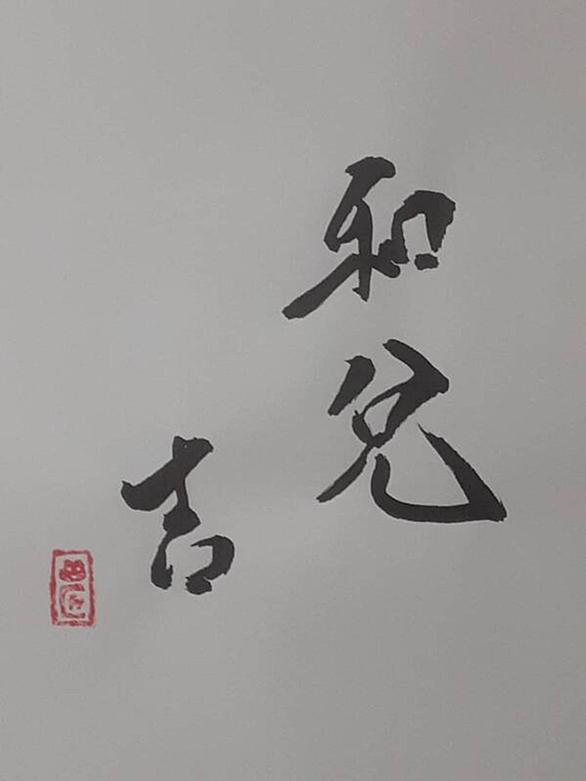 和兌
吉